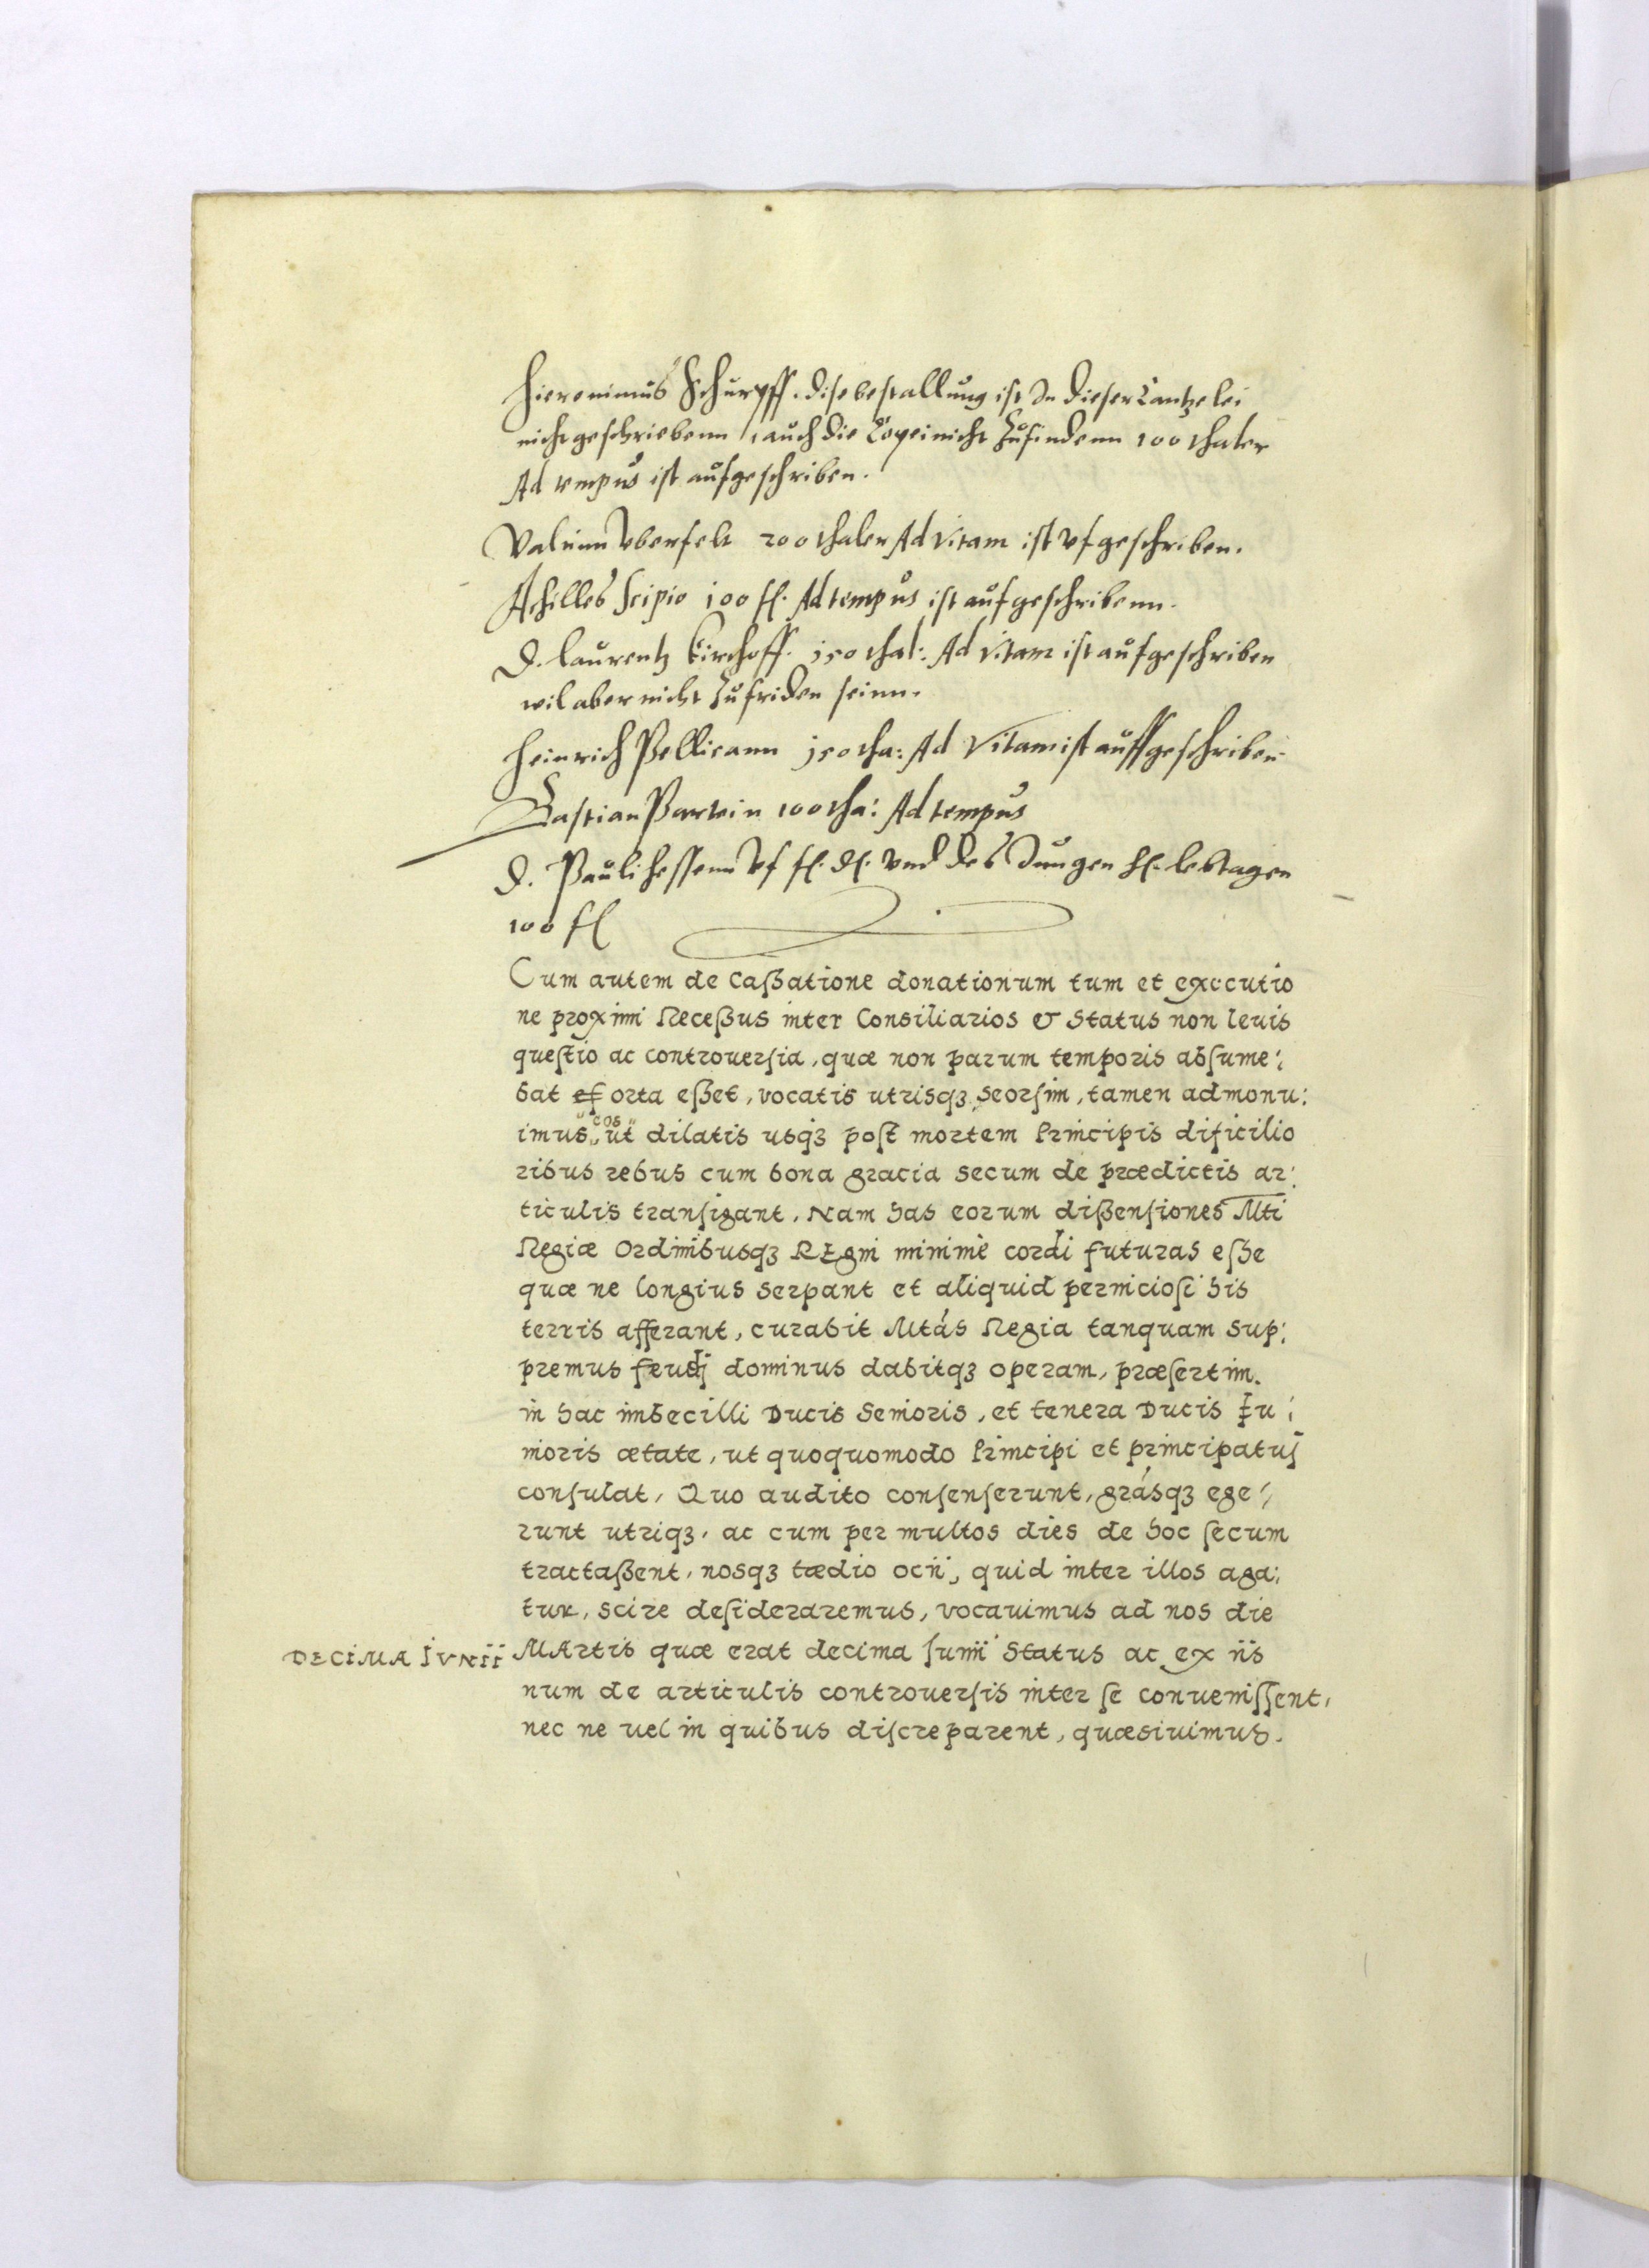 Hieronimus Schurpff. dise bestallung ist In dieser Cantzelei
nicht geschriebenn, auch die Copei nicht Zufindenn 100 thaler
Ad tempus ist aufgeschriben.
Valtinn Vberfelt 200 thaler Ad vitam ist vfgeschriben.
Achilles Scipio 100 fl. Ad tempus ist aufgeschribenn.
D. Laurentz Kirchoff. 150 thal: Ad vitam ist aufgeschriben
wil aber nicht Zufriden seinn.
Heinrich Pellicann 150 tha: Ad Vitam ist auffgeschriben.
Bastian Partein 100 tha: Ad tempus
D. Pauli Hessenn vf f. d. vnd des Jungen H. lebtagen
100 fl
Cum autem de Caßatione donationum tum et executio
ne proximi Receßus inter Consiliarios & Status non leuis
questio ac controuersia, quæ non parum temporis absume:
bat orta eßet, vocatis utrisqz seorsim, tamen admonu:
imus eos ut dilatis usqz post mortem Principis dificilio
ribus rebus cum bona gracia secum de prædictis ar:
ticulis transigant, Nam has eorum dißensiones Mti
Regiæ Ordinibusqz REgni minimè cordi futuras eße
quæ ne longius serpant et aliquid perniciosi his
terris afferant, curabit Mtás Regia tanquam sup:
premus feudj dominus dabitqz operam, præsertim.
in hac imbecilli Ducis Senioris, et tenera Ducis Iu:
nioris ætate, ut quoquomodo Principi et principatuj
consulat, Quo audito consenserunt, grásqz ege:
runt utriqz, ac cum per multos dies de hoc secum
tractaßent, nosqz tædio ocii, quid inter illos aga:
tur, scire desideraremus, vocauimus ad nos die
DECIMA IVNII MArtis quæ erat decima Iunii Status ac ex iis
num de articulis controuersis inter se conuenissent,
nec ne uel in quibus discreparent, quæsiuimus.